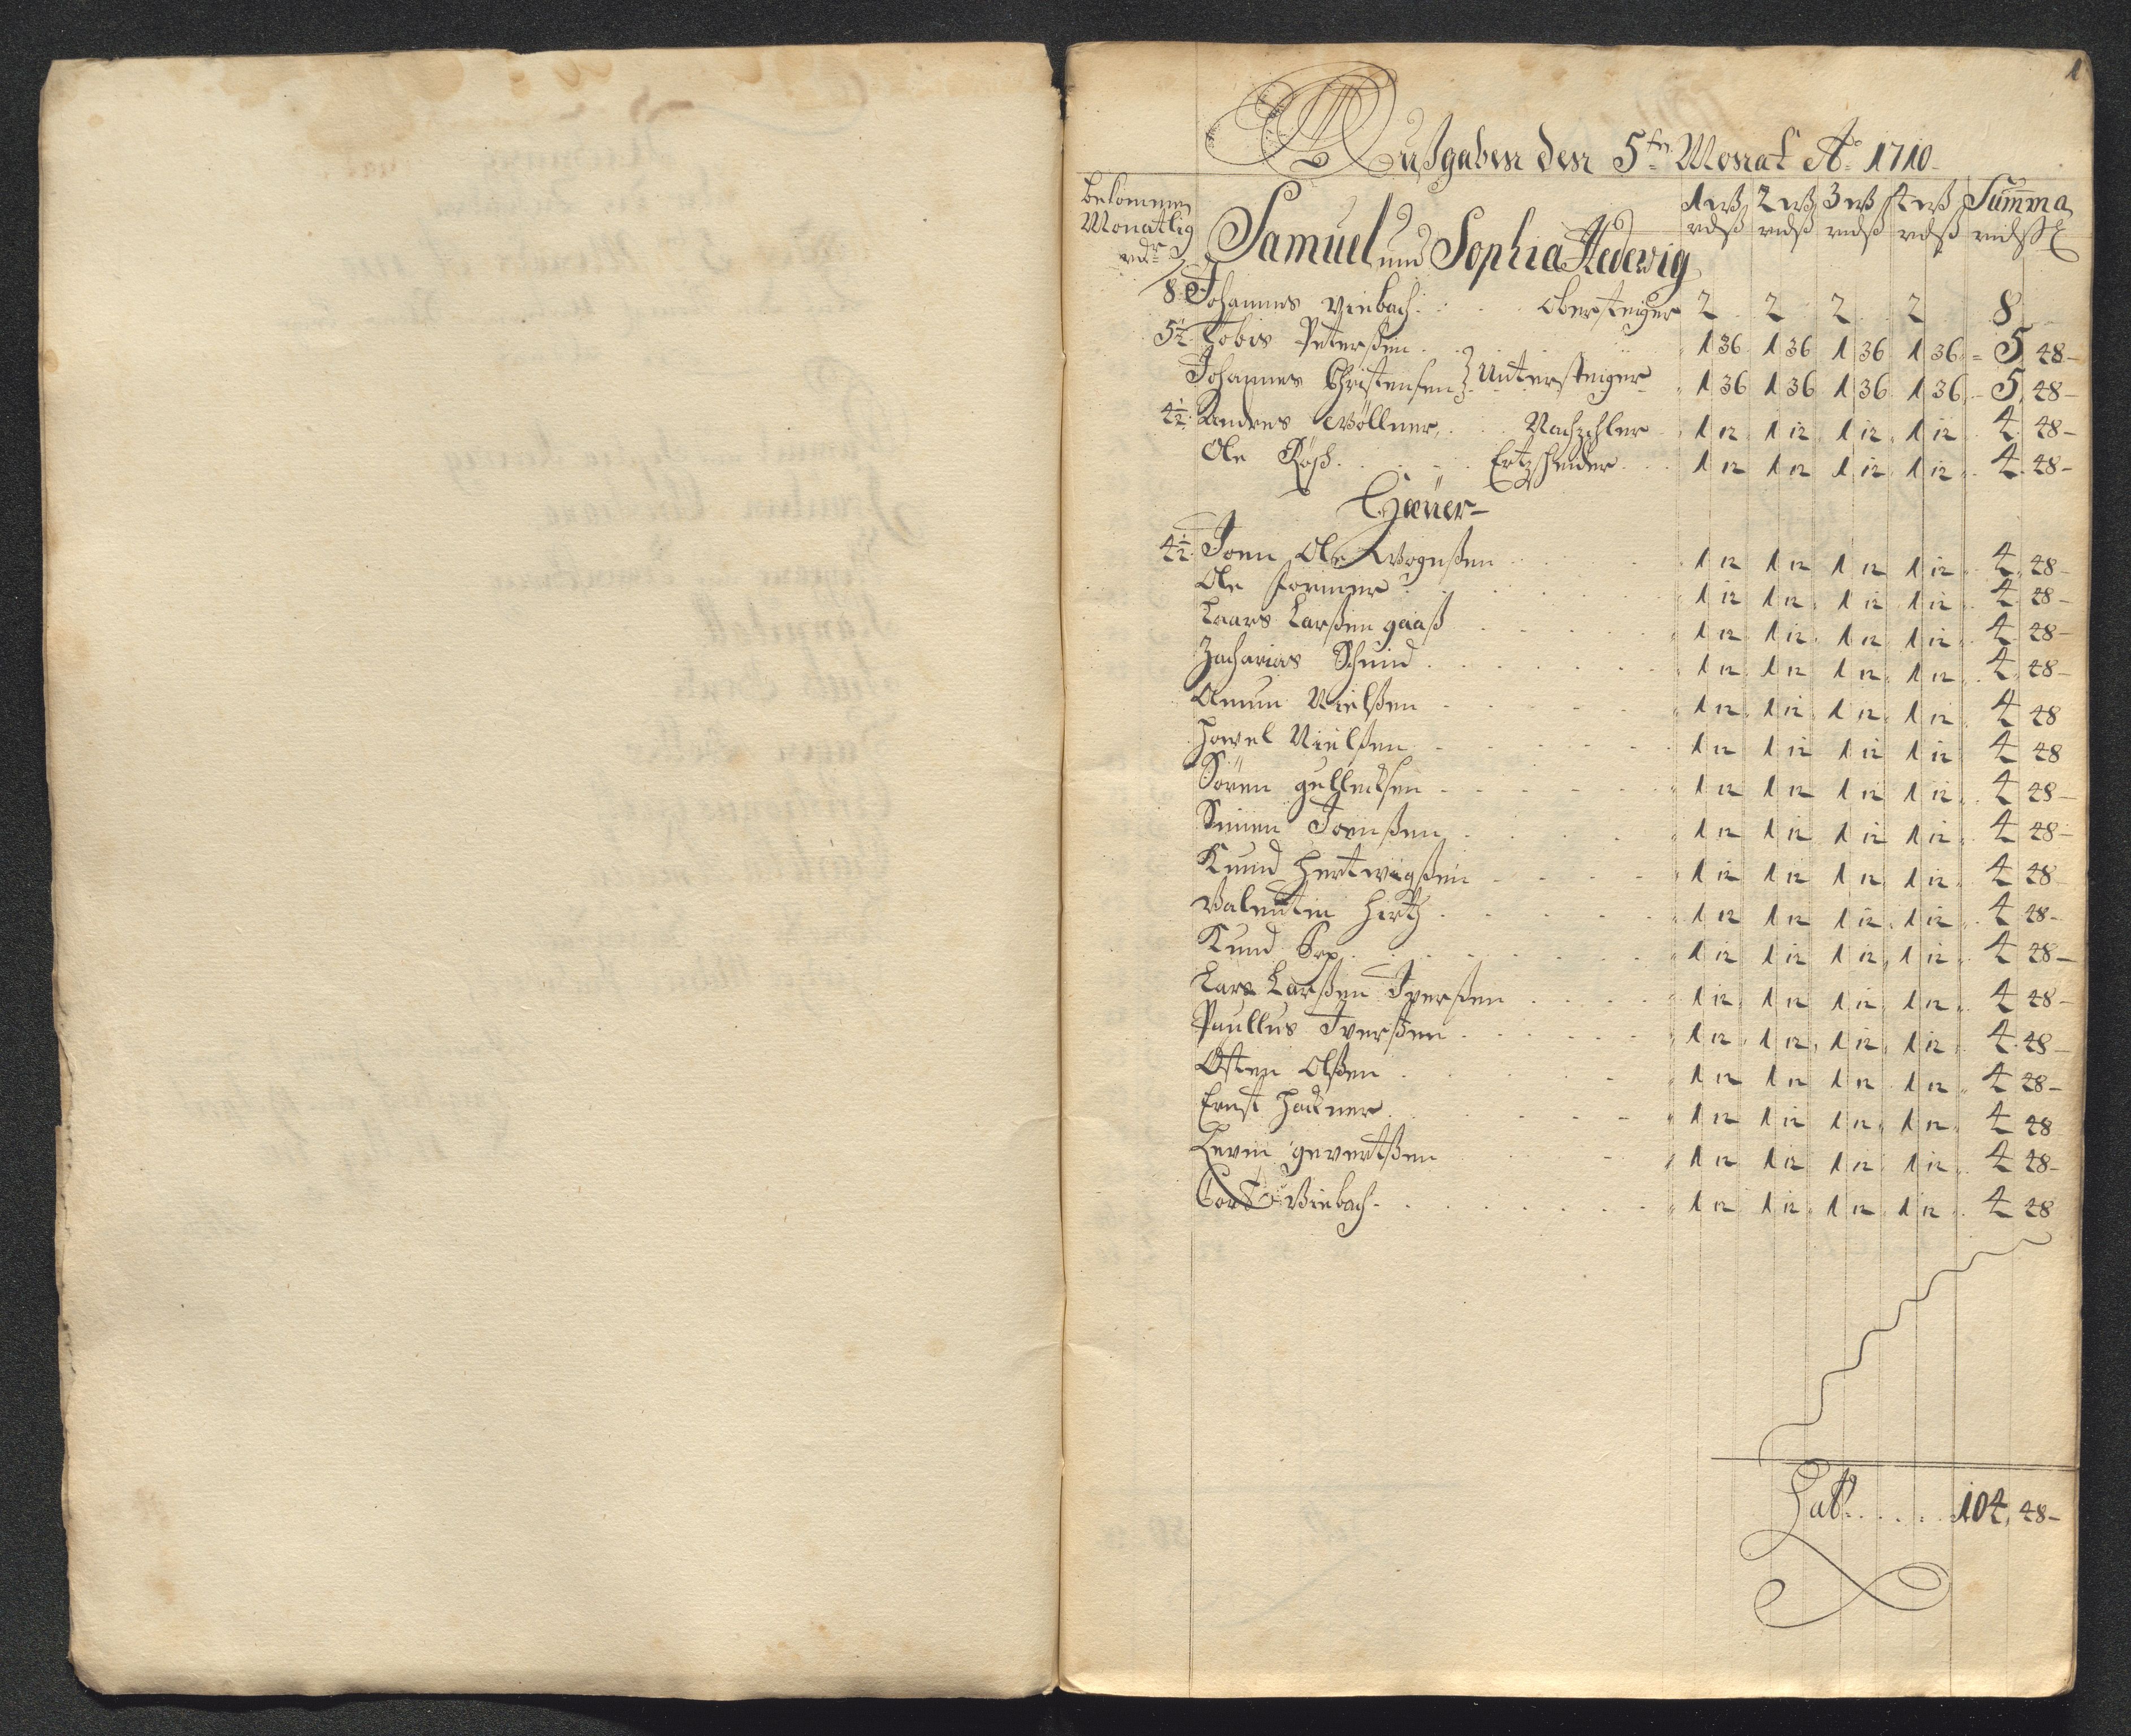 1
Außgaben den 5ten Monat Ao 1710
bekommen Monatlig rdr
1 wß 2 wß 3 wß 4 wß Summa
rdß rdß rdß rdß rdß
Samuel und Sophia Hedewig
8 Johannes Viebach Obersteiger 2 2 2 2 8
5½ Tobis Peterßen 1 36 1 36 1 36 1 36 5 48
Johannes Christensen Untersteiger 1 36 1 36 1 36 1 36 5 48
4½ Andres Wöllner Nachzehler 1 12 1 12 1 12 1 12 4 48
Ole Röß Ertzscheider 1 12 1 12 1 12 1 12 4 48
Häuer
4½ Joen Ole 1 12 1 12 1 12 1 12 4 48
Ole Former 1 12 1 12 1 12 1 12 4 48
Laars Larßen gaaß 1 12 1 12 1 12 1 12 4 48
Zacharias Schmid 1 12 1 12 1 12 1 12 4 48
Amun Nielßen 1 12 1 12 1 12 1 12 4 48
Howel Nielßen 1 12 1 12 1 12 1 12 4 48
Sören gullicksen 1 12 1 12 1 12 1 12 4 48
Simen Joenßen 1 12 1 12 1 12 1 12 4 48
Knud Hertwigßen 1 12 1 12 1 12 1 12 4 48
Valentin Hirtz 1 12 1 12 1 12 1 12 4 48
Knud 1 12 1 12 1 12 1 12 4 48
Lars Larßen Iverßen 1 12 1 12 1 12 1 12 4 48
Paullus Iverßen 1 12 1 12 1 12 1 12 4 48
Osten Olßen 1 12 1 12 1 12 1 12 4 48
Ernst Hackner 1 12 1 12 1 12 1 12 4 48
Levin gevertßen 1 12 1 12 1 12 1 12 4 48
Cort Viebach 1 12 1 12 1 12 1 12 4 48
Lat 104 48